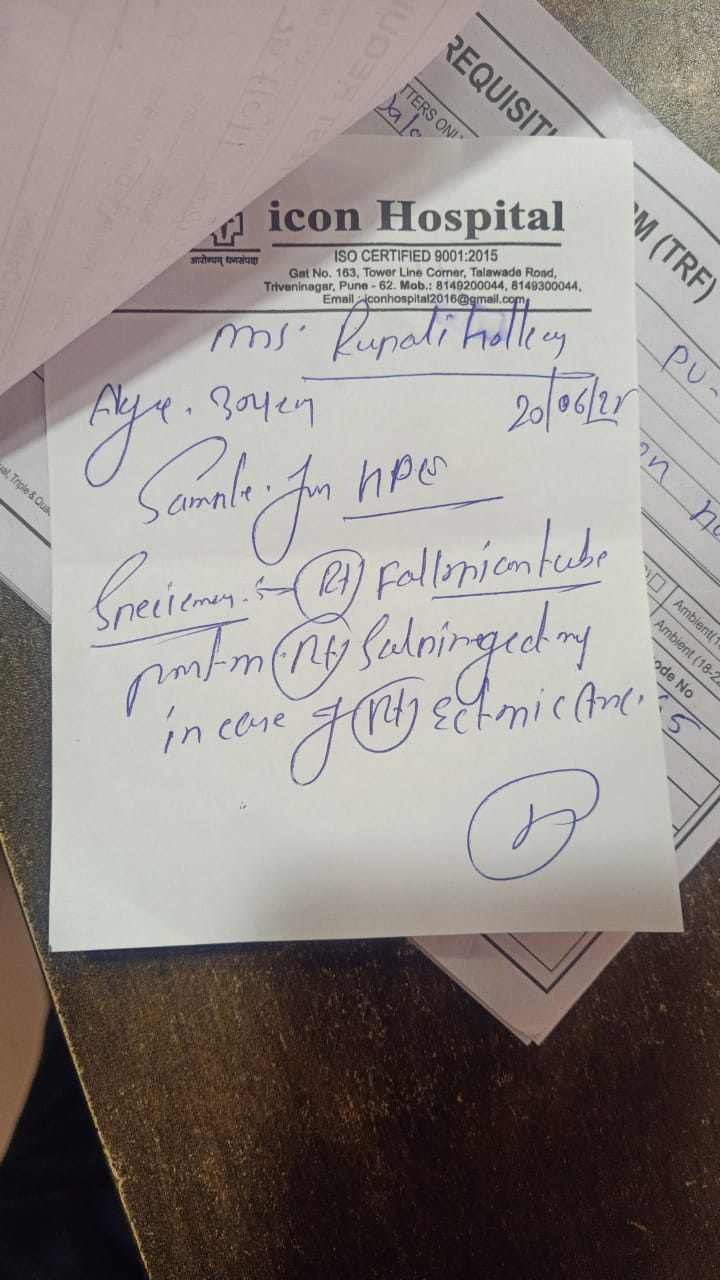 REQUISITI
TTERS ONL
M (TRF)
icon Hospital
आरोग्यम् धनसंपदा
ISO CERTIFIED 9001:2015
Gat No. 163, Tower Line Corner, Talawade Road,
Triveninagar, Pune - 62. Mob.: 8149200044, 8149300044,
Email : iconhospital2016@gmail.com
Rupali
Age.
20/06/
Sample for HPE
Specimen :- (Rt) Fallopian tube
(Rt) Salpingectomy
in case of (Rt) Ectopic
Ambient (18-2
ode No